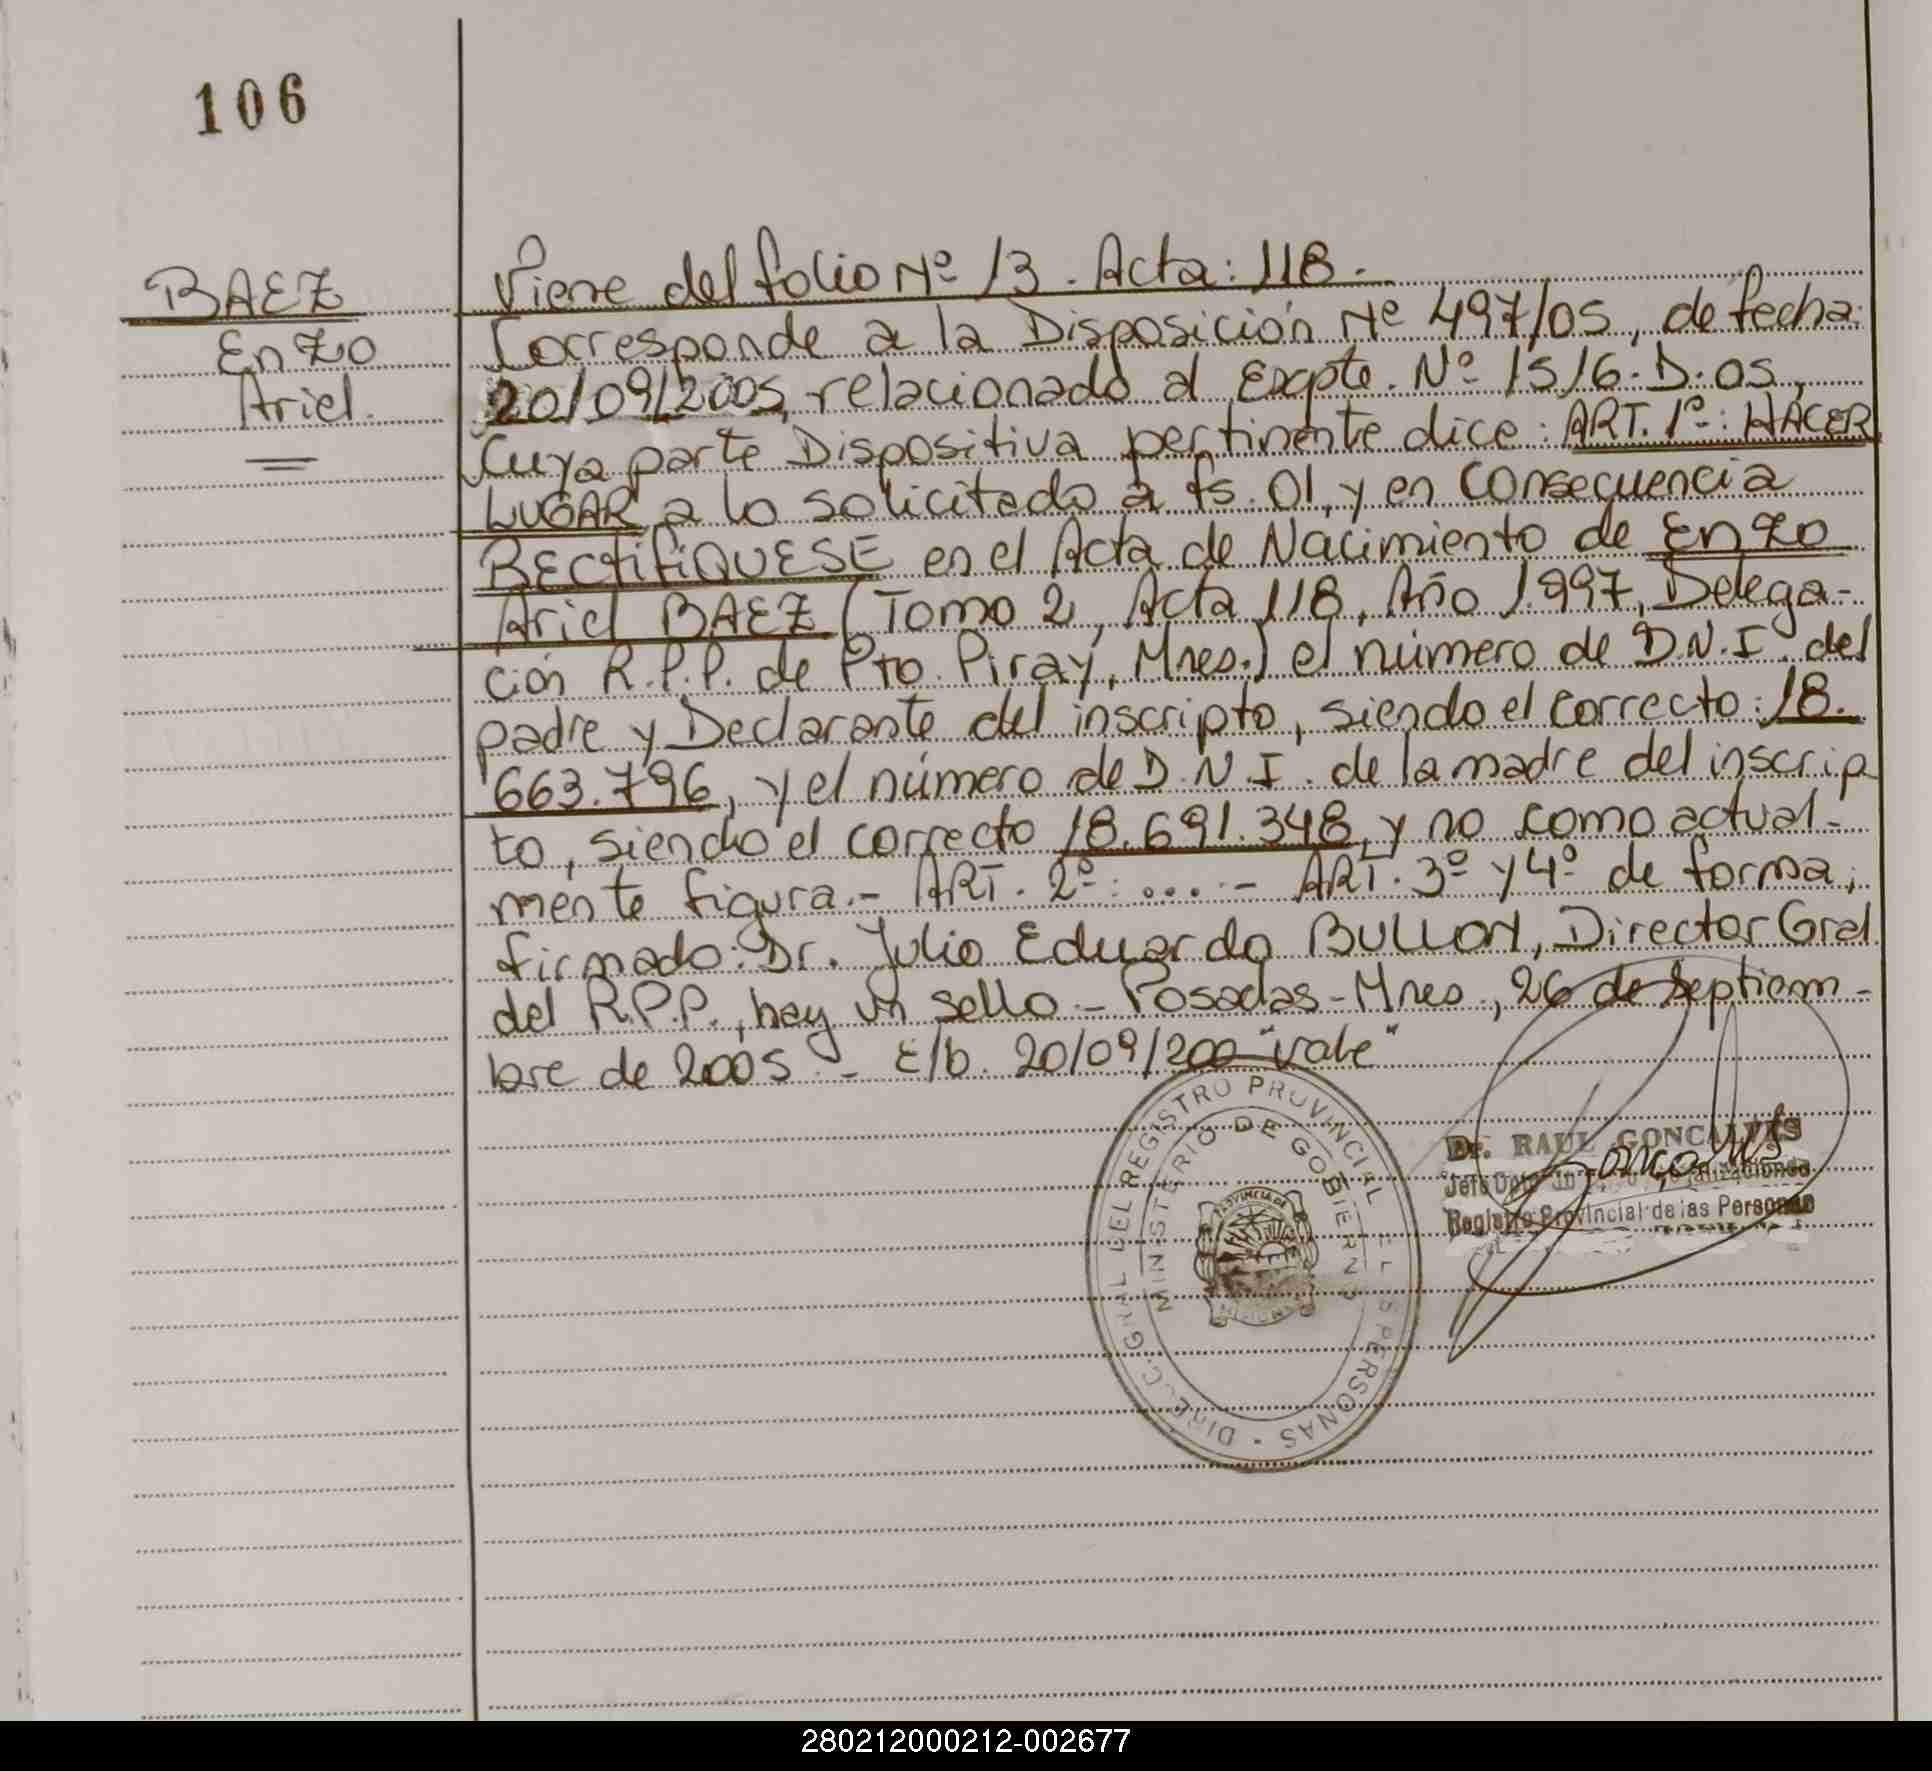 106
BAEZ
Enzo
Ariel.
Viene del folio Nº 13. Acta: 118.
Corresponde a la Disposición Nº 497/05, de fecha:
20/09/2005, relacionado al Expte. Nº 1516.D.05,
Cuya parte Dispositiva pertinente dice: ART. 1º: HACER
LUGAR a lo solicitado a fs. 01, y en consecuencia
RECTIFIQUESE en el Acta de Nacimiento de Enzo
Ariel BAEZ (Tomo 2, Acta 118, Año 1.997, Delega-
ción R.P.P. de Pto. Piray, Mnes.) el número de D.N.I. del
padre y Declarante del inscripto, siendo el correcto: 18.
663.796, y el número de D.N.I. de la madre del inscrip
to, siendo el correcto 18.691.348, y no como actual-
mente figura.- ART. 2º: ....- ART. 3º y 4º de forma;
firmado: Dr. Julio Eduardo BULLON, Director Gral
del R.P.P., hay un sello.- Posadas-Mnes., 26 de Septiem-
bre de 2005.- E/b. 20/09/200 "vale"
DIREC. GRAL DEL REGISTRO PROVINCIAL DE LAS PERSONAS
MINISTERIO DE GOBIERNO
PROVINCIA DE
MISIONES
Dr. RAUL GONCALVES
Jefe Dpto.
Registro Provincial de las Personas
280212000212-002677